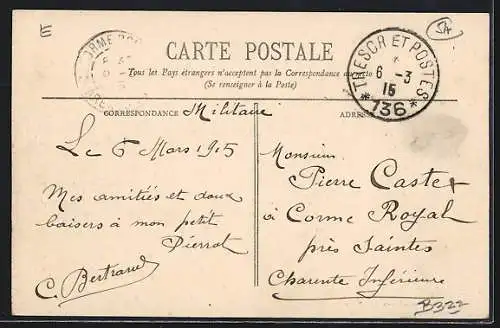 E
54
CARTE POSTALE
Tous les Pays étrangers n'acceptent pas la Correspondance au recto
(Se renseigner à la Poste)
TRESOR ET POSTES
6 - 3
15
* 136 *
CORRESPONDANCE
Militaire
ADRESSE
Le 6 Mars 1915
Mes amitiés et doux
baisers à mon petit
Pierrot
C. Bertrand
Monsieur
Pierre Castex
à Corme Royal
près Saintes
Charente Inférieure
B322